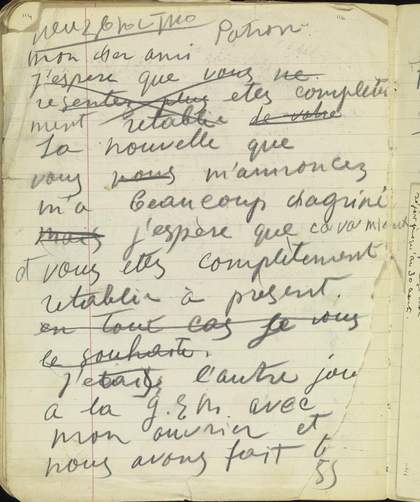 Patron
mon cher ami
j'espere que vous ne
resentez plus etes complete
ment retablie de votre
La nouvelle que
vous nous m'annoncez
m'a beaucoup chagriné
mais j'espère que ca va mieux
et vous etes complètement
retablie à présent.
en tout cas je vous
le souhaite.
J'etais l'autre jour
a la g.E.M. avec
mon ouvrier et
nous avons fait 6
55